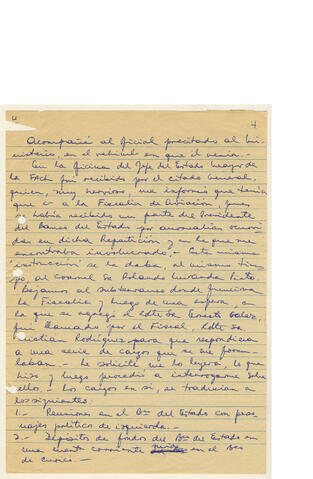 4 4
Acompañé al oficial precitado al Mi-
nisterio, en el vehículo en que él venía.-
En la Oficina del Jefe del Estado Mayor de
la FACh fui recibido por el citado General,
quien, muy nervioso, me informó que tenía
que ir a la Fiscalía de Aviación, pues
había recibido un parte del Presidente
del Banco del Estado por anomalías ocurri-
das en dicha Repartición y en la que me
encontraba involucrado.- Esta misma
instrucción se la daba, al mismo tiem-
po, al Coronel Sr Rolando Miranda Pinto.
Bajamos al subterráneo donde funciona
la Fiscalía y luego de una espera, en
la que se agregó el Cdte Sr Ernesto Galaz,
fui llamado por el Fiscal, Cdte Sr.
Cristian Rodríguez para que respondiera
a una serie de cargos que se me formu-
laban.- Le solicité me los leyera, lo que
hizo y luego procedió a interrogarme sobre
ellos.- Los cargos en sí, se traducían a
los siguientes:
1.- Reuniones en el Bco del Estado con perso
najes políticos de izquierda.-
2.- Depósitos de fondos del Bco del Estado en
una cuenta corriente en el Bco
de Curicó.-